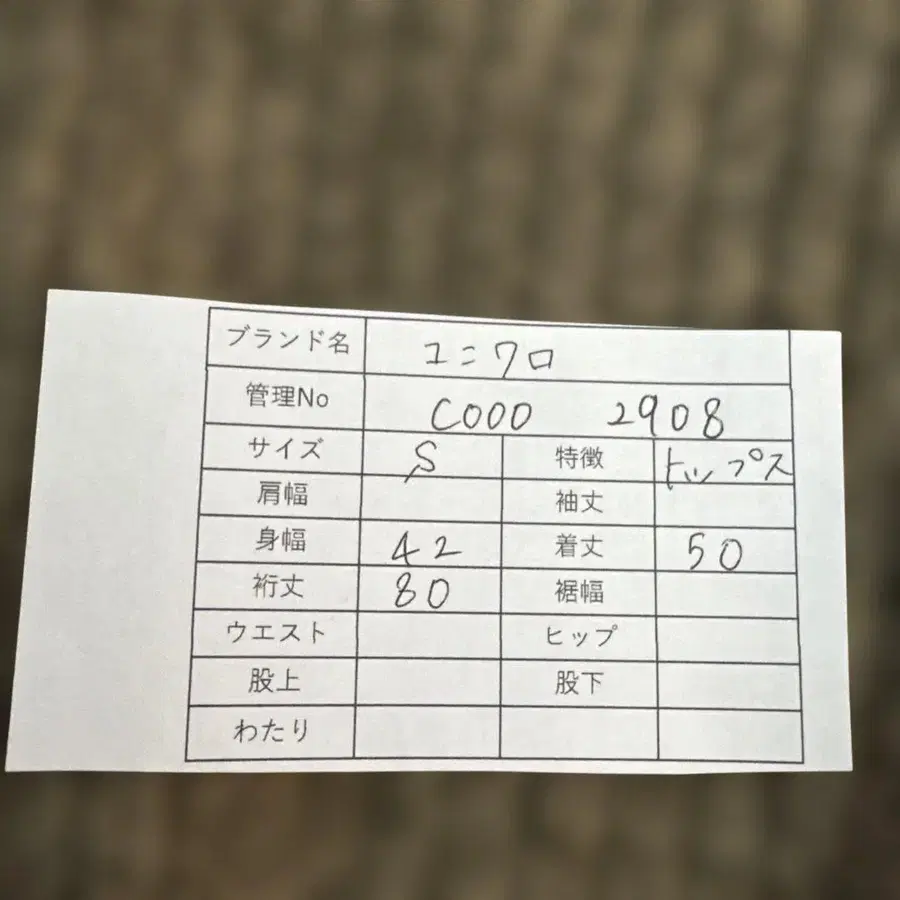 ブランド名 ユニクロ
管理No C000 2908
サイズ S 特徴 トップス
肩幅 袖丈
身幅 42 着丈 50
裄丈 80 裾幅
ウエスト ヒップ
股上 股下
わたり